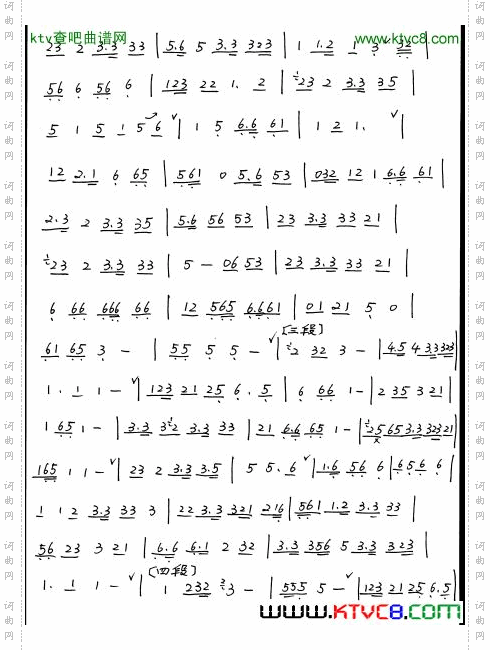 ktv查吧曲谱网 www.ktvc8.com
23 2 3.3 33 | 5.6 5 3.3 323 | 1 1.2 1 3 32 |
56 6 56 6 | 123 22 1. 2 | 23 2 3.3 35 |
5 1 5 1 5 6 | 1 5 6.6 61 | 1 2 1. |
12 2.1 6 65 | 561 0 5.6 53 | 032 12 1 6.6 61 |
2.3 2 3.3 35 | 5.6 56 53 | 23 3.3 33 21 |
23 2 3.3 33 | 5 - 06 53 | 23 3.3 33 21 |
6 66 666 66 | 12 565 6.661 | 01 21 5 0 |
[三段]
61 65 3 - | 55 5 5 - | 2 32 3 - | 4.5 4 3.3 323 |
1. 1 1 - | 123 21 25 6. 5 | 6 66 1 - | 2 35 3 21 |
1 65 1 - | 3.3 3 2 3.3 33 | 21 6.6 65 1 - | 25 65 3.3 3321 |
165 1 1 - | 23 2 3.3 3.5 | 5 5. 6 | 1.6 56 6 | 65 6 6 |
1 12 3.3 33 3 | 22 3.3 321 216 | 561 1.2 3.3 33 |
56 23 3 21 | 6.6 6.1 2 32 | 3.3 356 5 3.3 323 |
[四段]
1. 1 1 - | 1 232 3 - | 555 5 - | 123 21 25 6.5 |
www.KTVC8.com
词曲网
词曲网
词曲网
词曲网
词曲网
词曲网
词曲网
词曲网
词曲网
词曲网
词曲网